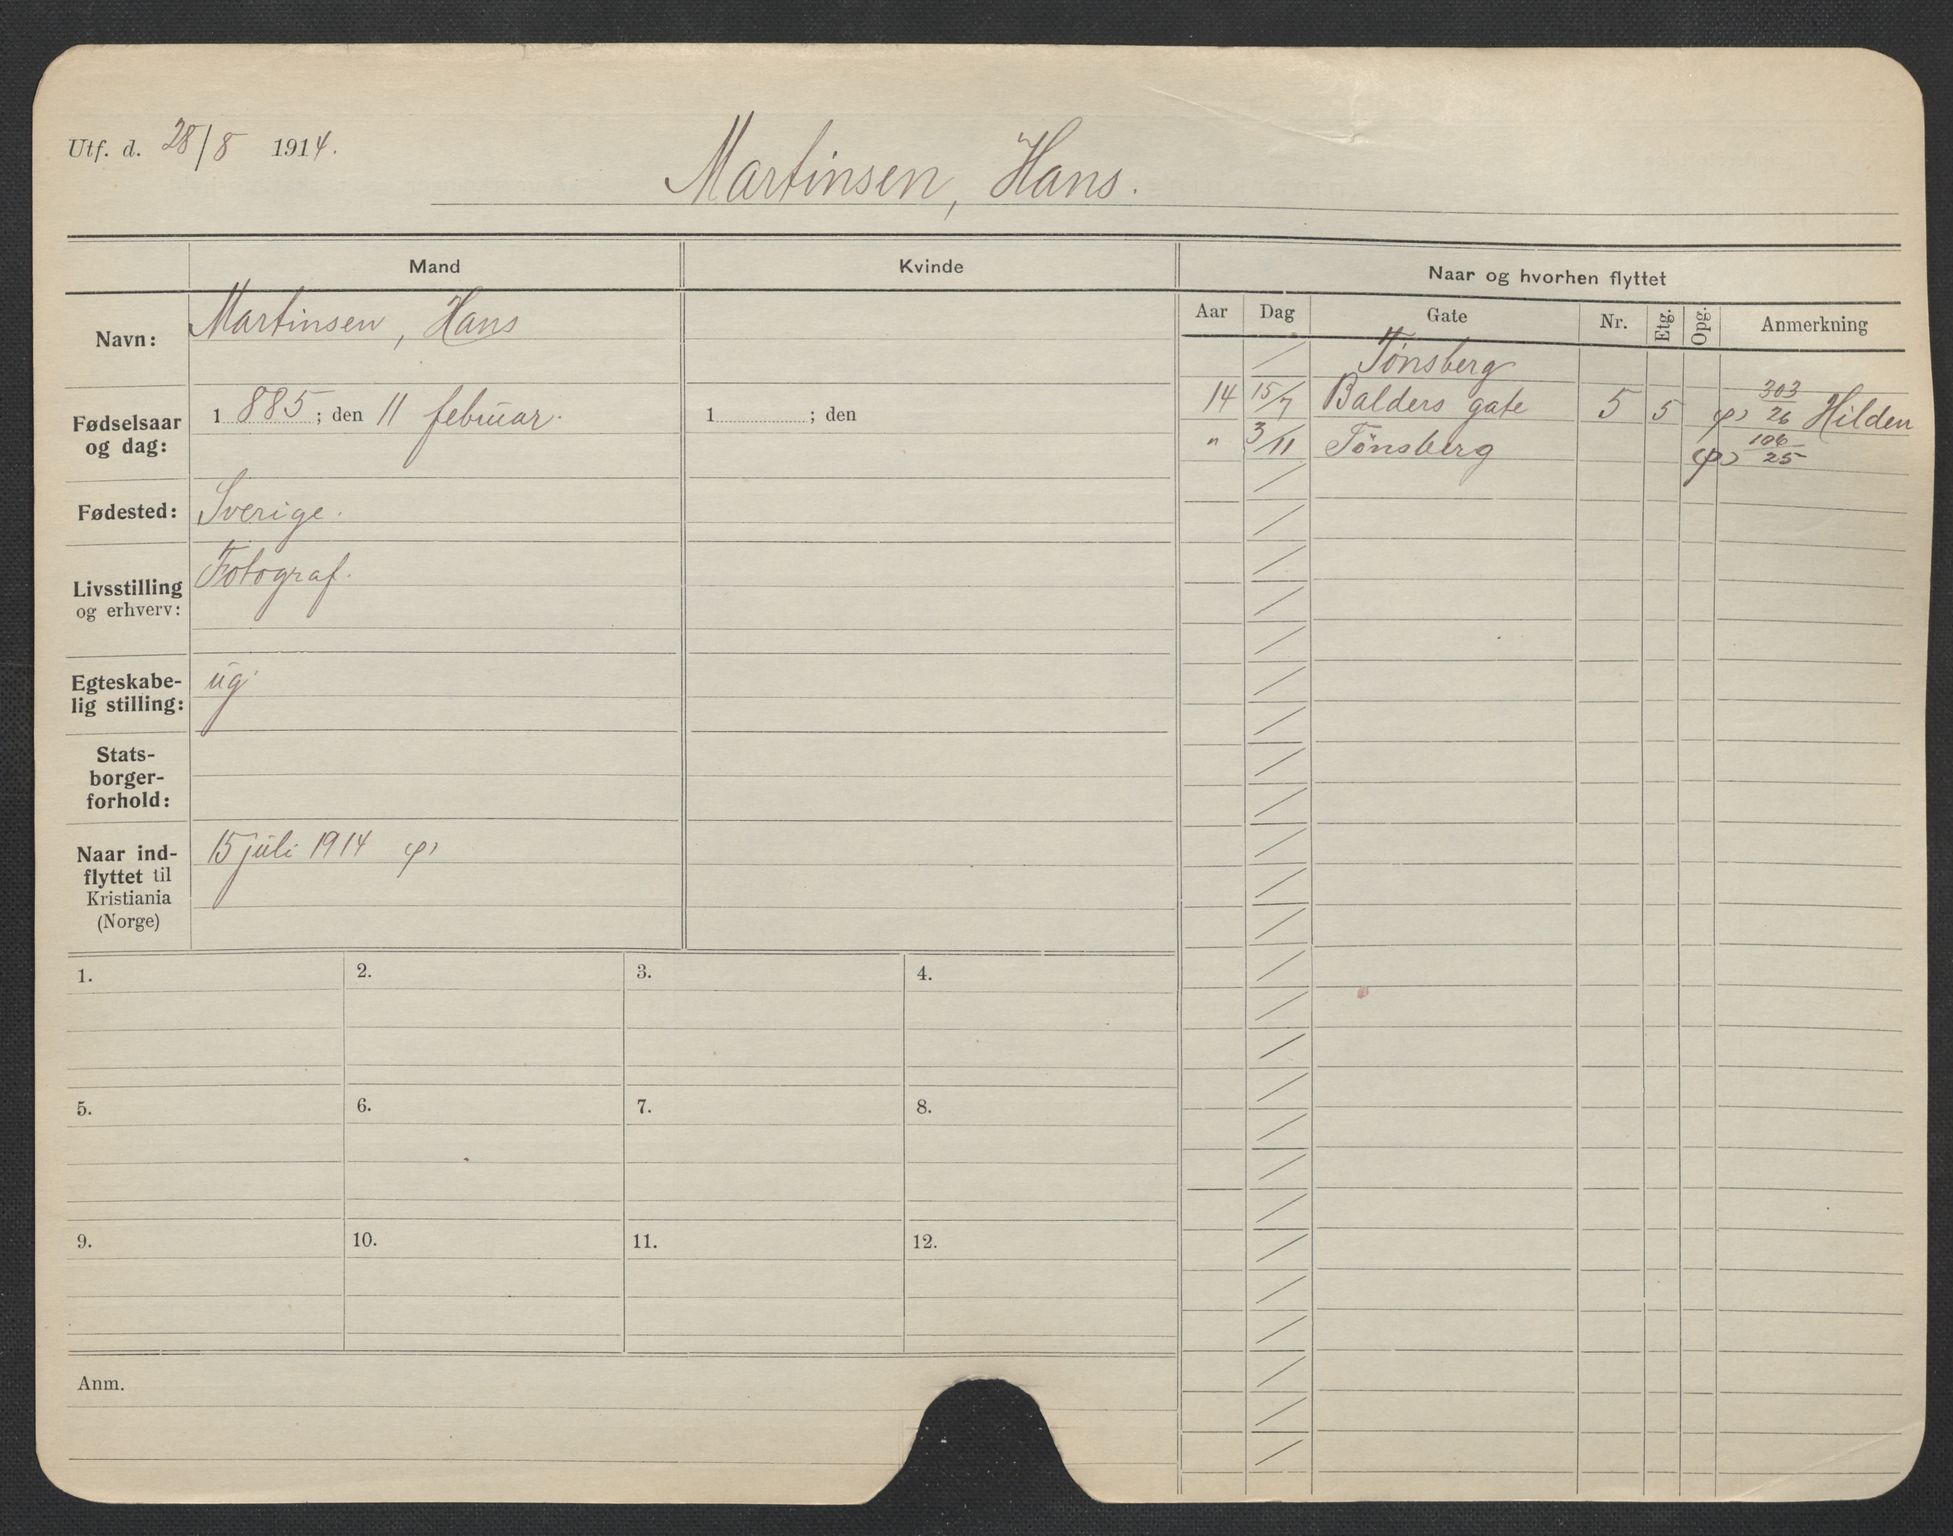 Utf. d. 28/8 1914.
Martinsen, Hans.
Mand
Kvinde
Naar og hvorhen flyttet
Aar Dag Gate Nr. Etg. Opg. Anmerkning
Navn: Martinsen, Hans
Fødselsaar og dag: 1885; den 11 februar. 1 ; den
Fødested: Sverige.
Livsstilling og erhverv: Fotograf.
Egteskabe-
lig stilling: ug.
Stats-
borger-
forhold:
Naar ind-
flyttet til
Kristiania
(Norge)
15 juli 1914
Tønsberg
14 15/7 Balders gate 5 5 303/26 Hilden
" 3/11 Tønsberg 106/25
1. 2. 3. 4.
5. 6. 7. 8.
9. 10. 11. 12.
Anm.